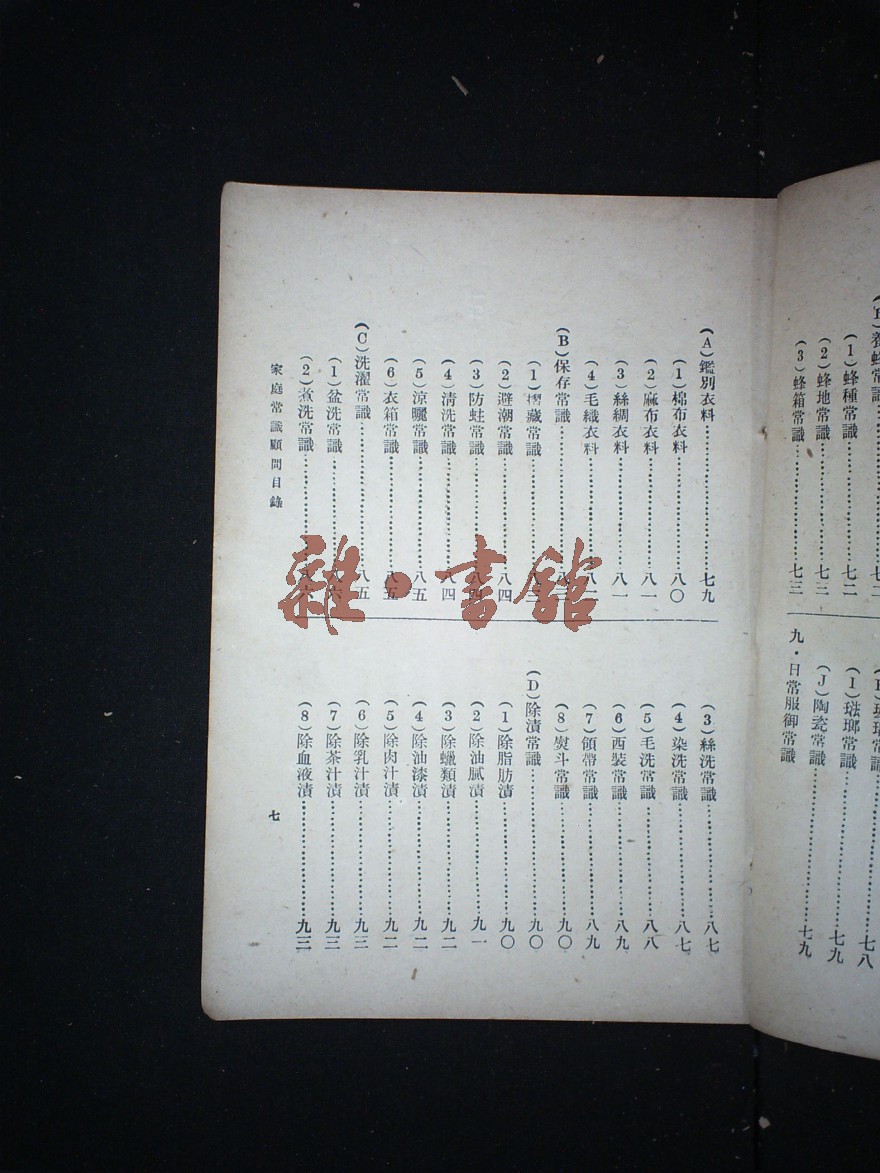 (3)蜂箱常識……七三
(2)蜂地常識……七三
(1)蜂種常識……七二
養蜂常識
九・日常服御常識
(J)陶瓷常識……七九
(I)琺瑯常識……七九
七八
(A)鑑別衣料……七九
(1)棉布衣料……八〇
(2)麻布衣料……八一
(3)絲綢衣料……八一
(4)毛織衣料……八二
(B)保存常識……八
(1)摺藏常識……八三
(2)避潮常識……八四
(3)防蛀常識……八四
(4)清洗常識……八四
(5)涼曬常識……八五
(6)衣箱常識……八五
(C)洗濯常識……八五
(1)盆洗常識……八六
(2)煮洗常識……八六
(3)絲洗常識……八七
(4)染洗常識……八七
(5)毛洗常識……八八
(6)西裝常識……八九
(7)領帶常識……八九
(8)熨斗常識……九〇
(D)除漬常識……九〇
(1)除脂肪漬……九〇
(2)除油膩漬……九一
(3)除蠟類漬……九二
(4)除油漆漬……九二
(5)除肉汁漬……九二
(6)除乳汁漬……九三
(7)除茶汁漬……九三
(8)除血液漬……九三
家庭常識顧問目錄
七
雜・書館